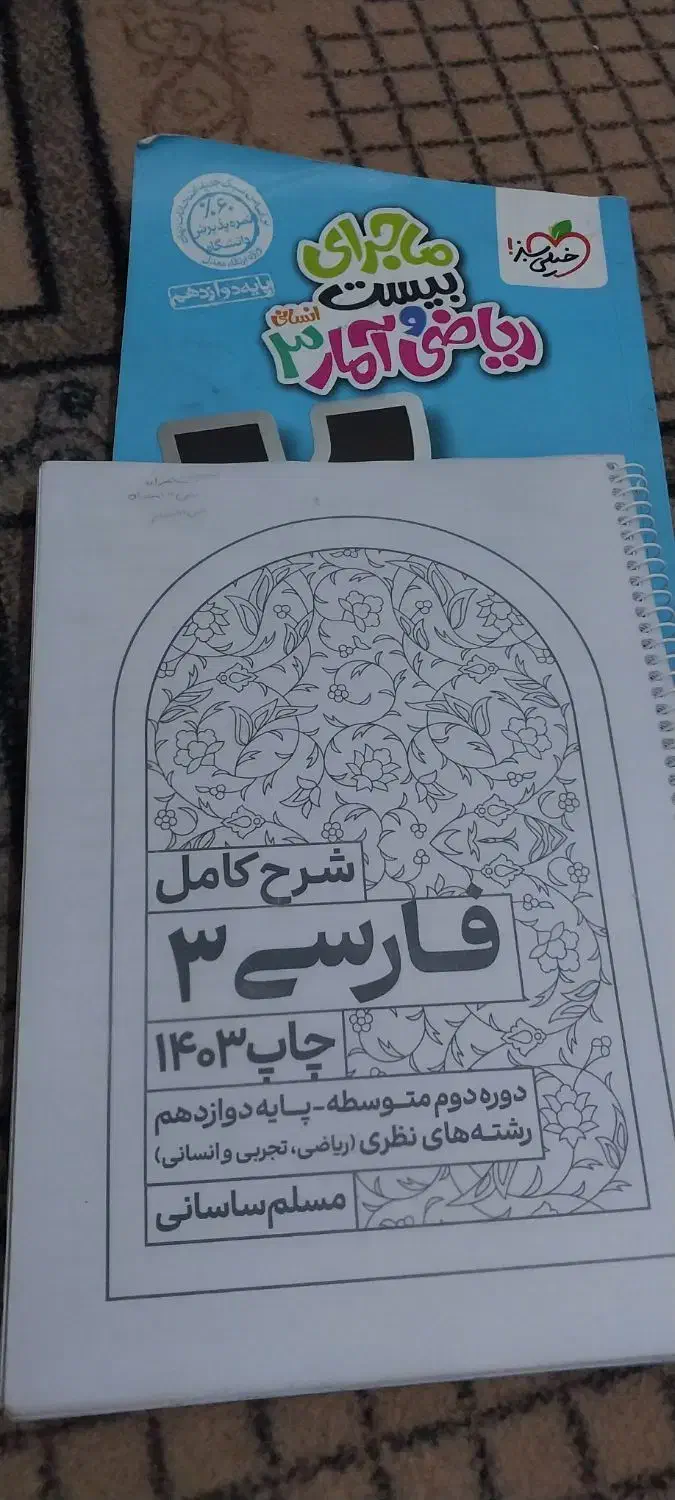 خیلی سبز!
ماجرای
بیست
ریاضی و آمار ۳
انسانی
۶۰٪
دانشگاه
پایه دوازدهم
شرح کامل
فارسی ۳
چاپ ۱۴۰۳
دوره دوم متوسطه - پایه دوازدهم
رشته‌های نظری (ریاضی، تجربی و انسانی)
مسلم ساسانی